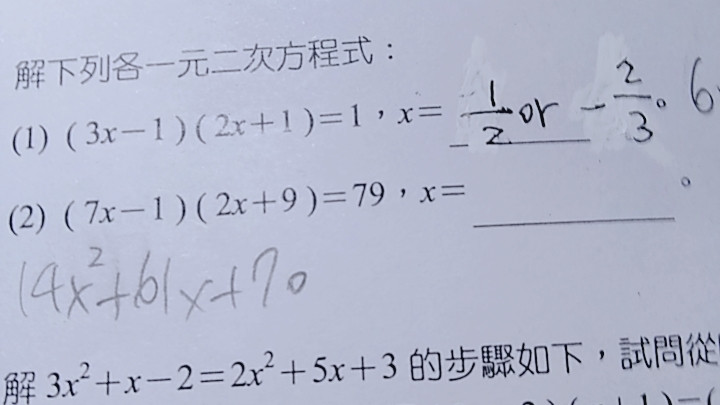 解下列各一元二次方程式：
(1) ( 3x－1 ) ( 2x＋1 )＝1，x＝ 1/2 or － 2/3。 6
(2) ( 7x－1 ) ( 2x＋9 )＝79，x＝ ______ 。
14x²+61x+70
解 3x²＋x－2＝2x²＋5x＋3 的步驟如下，試問從